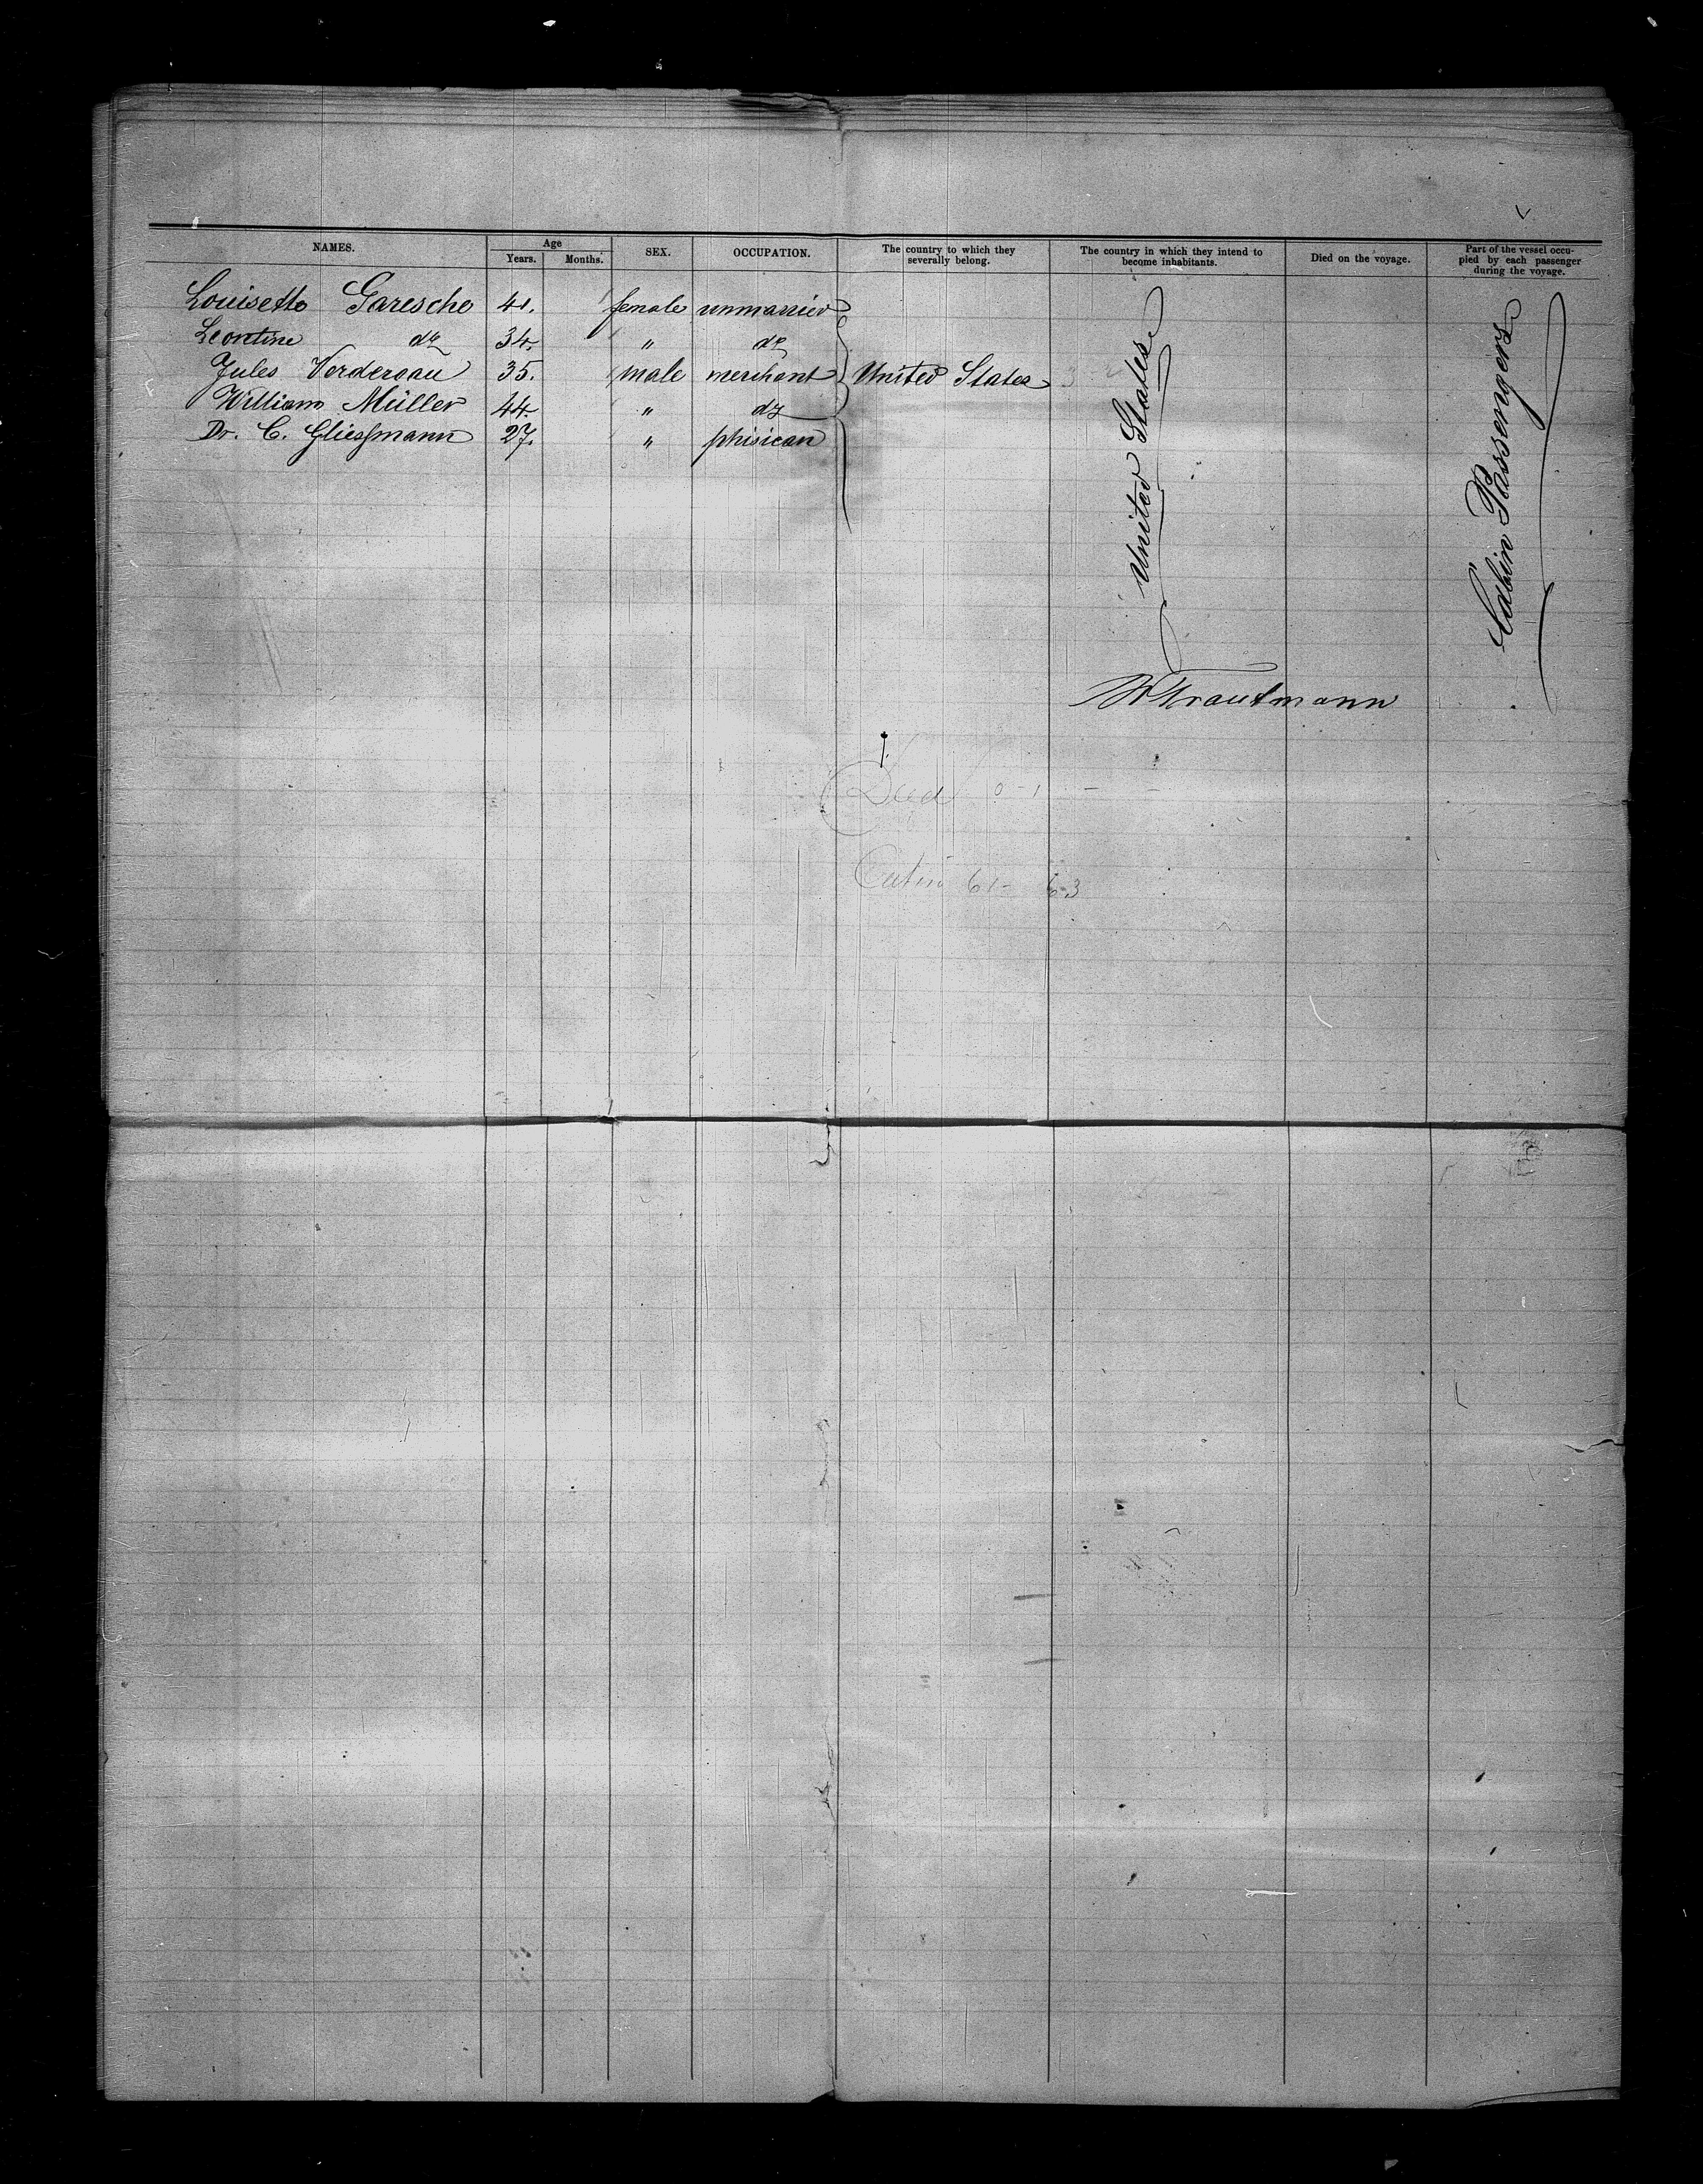 NAMES. Age SEX. OCCUPATION. The country to which they severally belong. The country in which they intend to become inhabitants. Died on the voyage. Part of the vessel occupied by each passenger during the voyage.
Years. Months.
Louisette Garesche 41. female unmarried
Leontine do 34. " do
Jules Verdereau 35. male merchant United States
William Müller 44. " do
Dr. C. Gliessmann 27. " phisican
United States
Cabin Passengers
W Trautmann
Died 0-1 - -
Cabin 61- 63